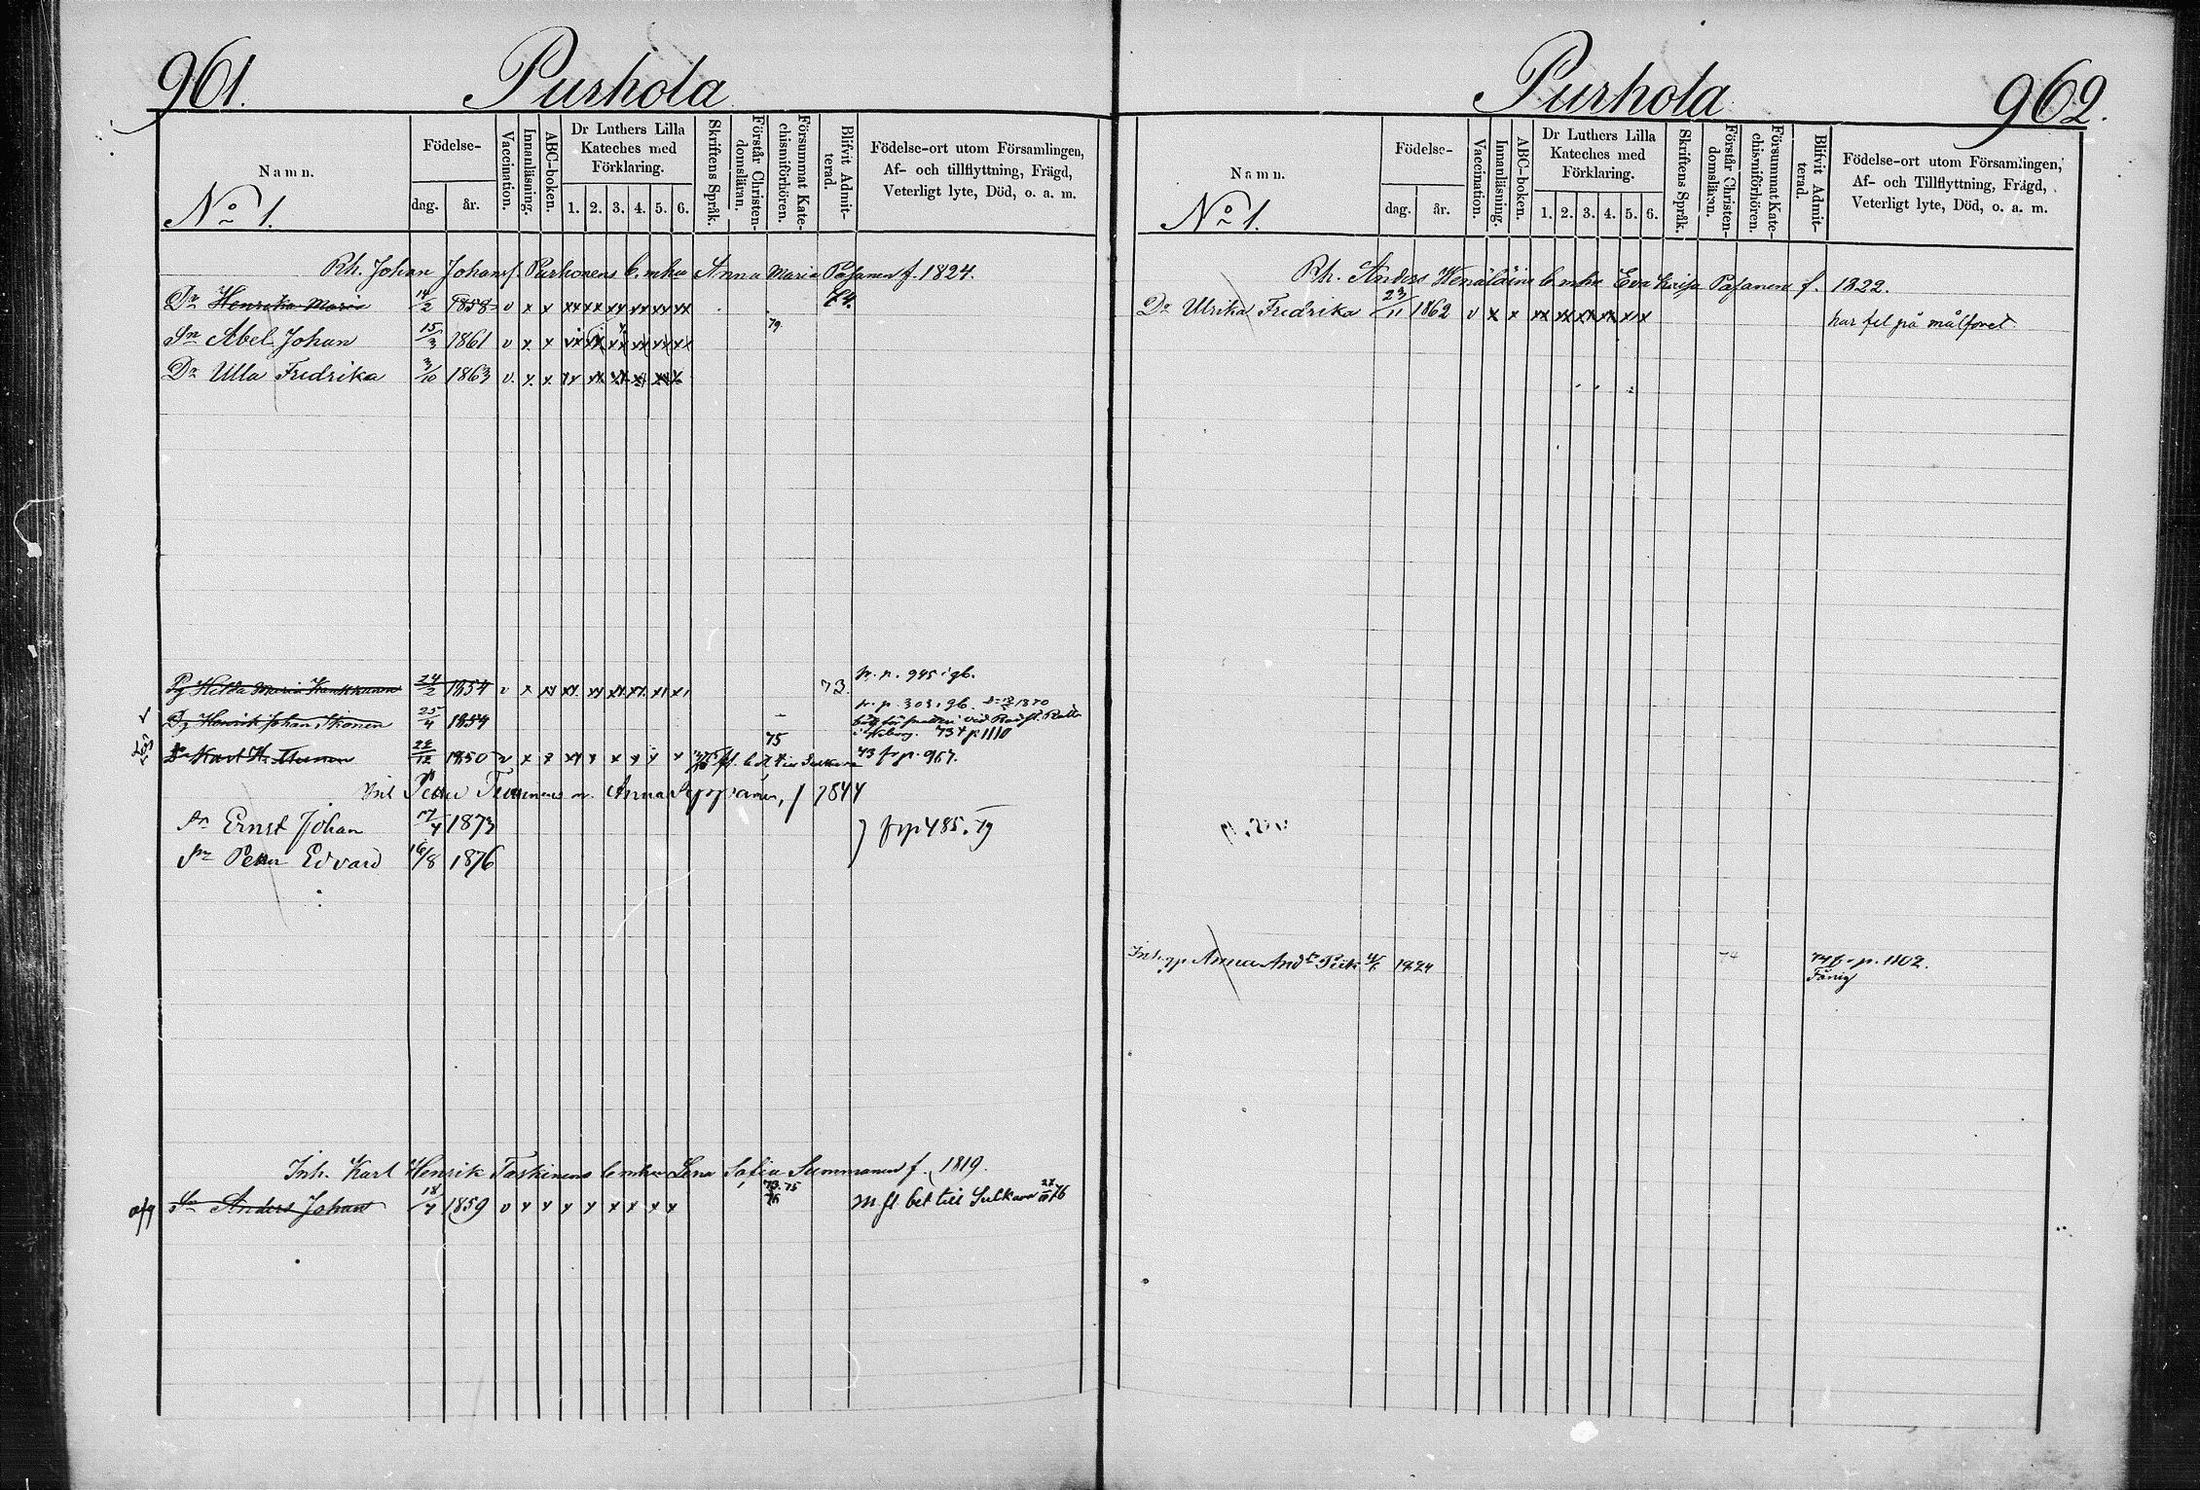 961. Purhola
Namn.
No 1.
Födelse-
dag. år.
Vaccination.
Innanläsning.
ABC-boken.
Dr Luthers Lilla
Kateches med
Förklaring.
1. 2. 3. 4. 5. 6.
Skriftens Språk.
Förstår Christen-
domsläran.
Försummat Kate-
chismiförhören.
Blifvit Admit-
terad.
Födelse-ort utom Församlingen,
Af- och tillflyttning, Frägd,
Veterligt lyte, Död, o. a. m.
Rh. Johan Johansf. Purhonens b. m hu Anna Maria Pasanen f. 1824.
Dr Henrika Maria 14/2 1858 v x x xx xx xx xx xx xx 74.
79
Sn Abel Johan 15/3 1861 v x x xx xx xx xx xx xx
Dr Ulla Fredrika 3/10 1863 v. x x xx xx xx xx xx x
fr. p. 945 i gb.
Pg Hilda Maria 24/2 1854 v x xx xx xx xx xx xx x 73.
fr. p. 303 i gb. 1870
Dg Henrik Johan 25/4 1854
73 t p. 1110
75
Karl H. 1850 v x x xx x x x x x 73 fr p. 967.
Petter m. Anna f 1844
Sn Ernst Johan 17/4 1873
} fr p 485. 79
Sn Petter Edvard 16/8 1876
Inh. Karl Henrik Taskinens b m hu Lena Sofia Summanen f. 1819.
73. 75
76
afg Sn Anders Johan 18/4 1859 v x x x x x x x x m fl bet till Sulkava 76
Purhola 962.
Namn.
No 1.
Födelse-
dag. år.
Vaccination.
Innanläsning.
ABC-boken.
Dr Luthers Lilla
Kateches med
Förklaring.
1. 2. 3. 4. 5. 6.
Skriftens Språk.
Förstår Christen-
domsläran.
Försummat Kate-
chismiförhören.
Blifvit Admit-
terad.
Födelse-ort utom Församlingen,
Af- och Tillflyttning, Frägd,
Veterligt lyte, Död, o. a. m.
Rh. Anders b. m hu Eva Lovisa Pasanen f. 1822.
Dr Ulrika Fredrika 23/11 1862 v x x xx xx xx xx x x
har fel på målföret
Anna And. dr 1824 74 fr p. 1102.
Fånig